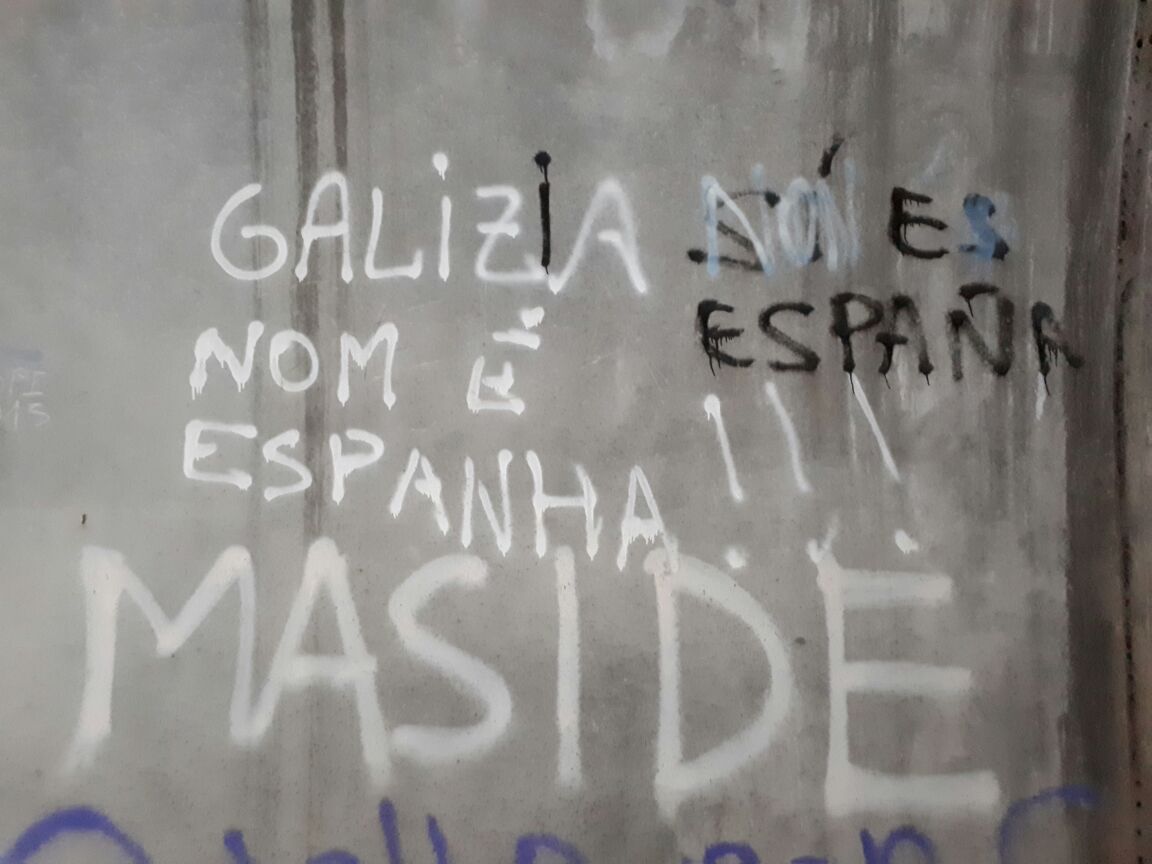 GALIZIA
NOM É
ESPANHA !!!
NON ES
ESPAÑA
MASIDE